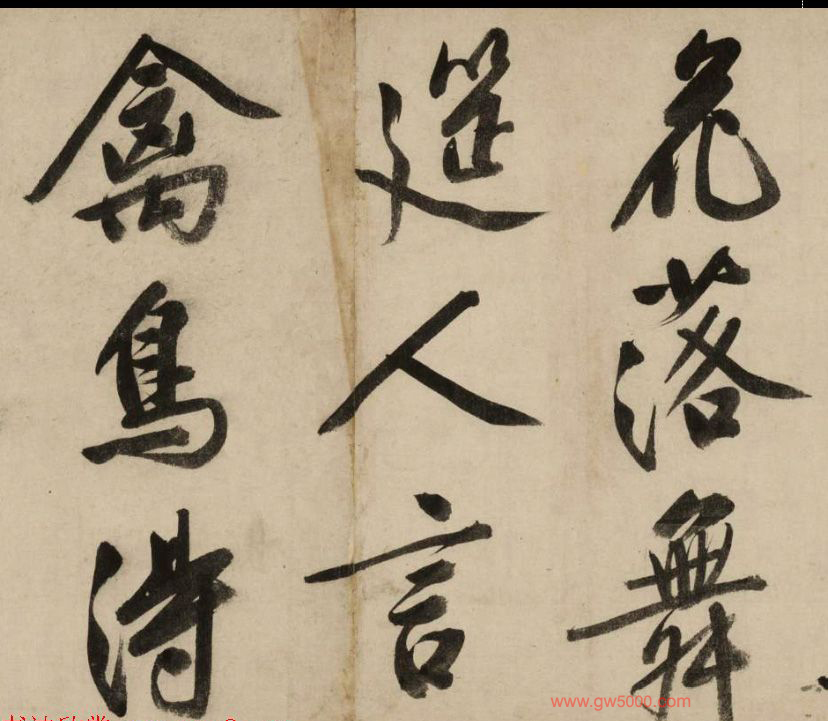 花落舞
筵人言
禽鳥得
www.gw5000.com